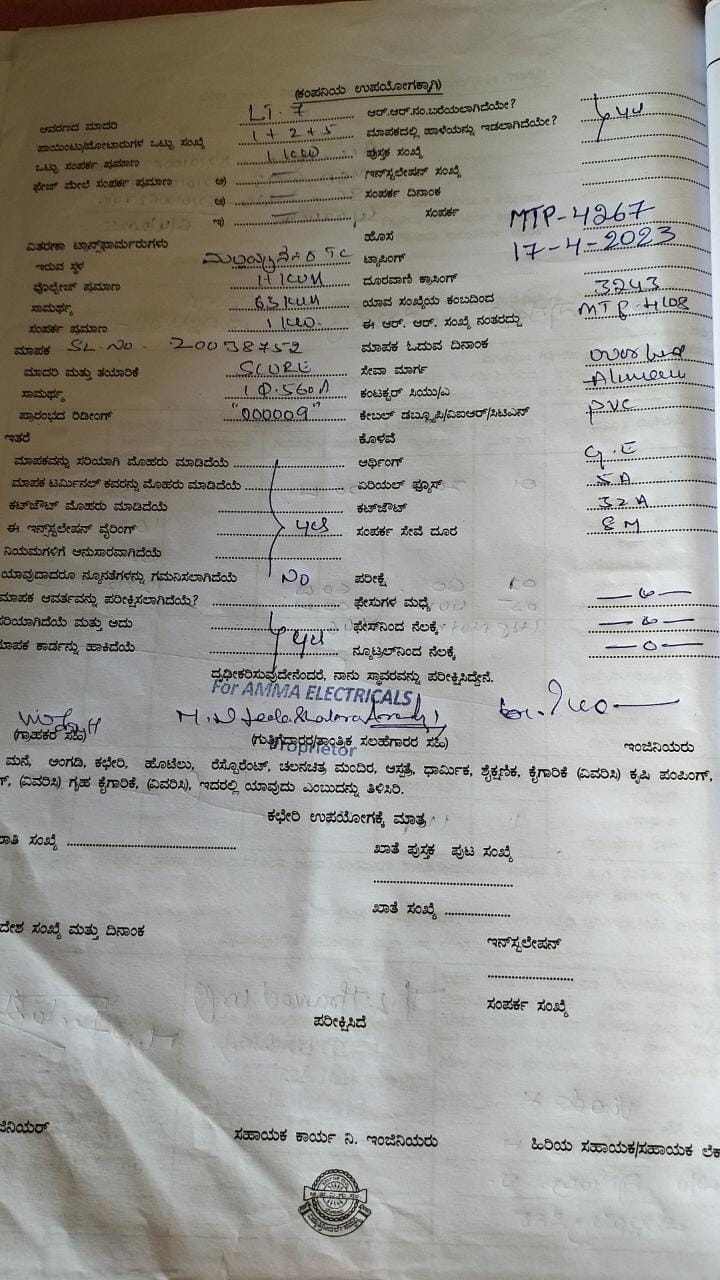 (ಕಂಪನಿಯ ಉಪಯೋಗಕ್ಕಾಗಿ)
ಆವರಣದ ಮಾದರಿ LT-7 ಆರ್.ಆರ್.ನಂ.ಬರೆಯಲಾಗಿದೆಯೇ?
ಪಾಯಿಂಟು/ಮೋಟಾರುಗಳ ಒಟ್ಟು ಸಂಖ್ಯೆ 1+2+5 ಮಾಪಕದಲ್ಲಿ ಹಾಳೆಯನ್ನು ಇಡಲಾಗಿದೆಯೇ? yes
ಒಟ್ಟು ಸಂಪರ್ಕ ಪ್ರಮಾಣ 1 KW ಪುಸ್ತಕ ಸಂಖ್ಯೆ
ಫೇಜ್ ಮೇಲೆ ಸಂಪರ್ಕ ಪ್ರಮಾಣ ಅ) — ಇನ್‌ಸ್ಟಲೇಷನ್ ಸಂಖ್ಯೆ
ಆ) — ಸಂಪರ್ಕ ದಿನಾಂಕ
ಇ) — ಸಂಪರ್ಕ
ಹೊಸ MTP-4267
ವಿತರಣಾ ಟ್ರಾನ್ಸ್‌ಫಾರ್ಮರುಗಳು ಟ್ಯಾಪಿಂಗ್ 17-4-2023
ಇರುವ ಸ್ಥಳ TC ದೂರವಾಣಿ ಕ್ರಾಸಿಂಗ್
ವೊಲ್ಟೇಜ್ ಪ್ರಮಾಣ 11 KVA ಯಾವ ಸಂಖ್ಯೆಯ ಕಂಬದಿಂದ 3243
ಸಾಮರ್ಥ್ಯ 63 KVA ಈ ಆರ್. ಆರ್. ಸಂಖ್ಯೆ ನಂತರದ್ದು
ಸಂಪರ್ಕ ಪ್ರಮಾಣ 1 KW. ಮಾಪಕ ಓದುವ ದಿನಾಂಕ
ಮಾಪಕ SL.No - 20038752 ಸೇವಾ ಮಾರ್ಗ
ಮಾದರಿ ಮತ್ತು ತಯಾರಿಕೆ SCURE ಕಂಟಕ್ಟರ್ ಸಿಯು/ಎ
ಸಾಮರ್ಥ್ಯ ಕೇಬಲ್ ಡಬ್ಲ್ಯೂಪಿ/ಎಐಆರ್/ಸಿಟಿಎನ್ PVC
ಪ್ರಾರಂಭದ ರಿಡೀಂಗ್ "000009" ಕೊಳವೆ
ಇತರೆ ಆರ್ಥಿಂಗ್ G.I
ಮಾಪಕವನ್ನು ಸರಿಯಾಗಿ ಮೊಹರು ಮಾಡಿದೆಯೆ ಏರಿಯಲ್ ಫ್ಯೂಸ್ 5A
ಮಾಪಕ ಟರ್ಮಿನಲ್ ಕವರನ್ನು ಮೊಹರು ಮಾಡಿದೆಯೆ ಕಟ್‌ಔಟ್ 32A
ಕಟ್‌ಜೌಟ್ ಮೊಹರು ಮಾಡಿದೆಯೆ yes ಸಂಪರ್ಕ ಸೇವೆ ದೂರ 8M
ಈ ಇನ್‌ಸ್ಟಲೇಷನ್ ವೈರಿಂಗ್
ನಿಯಮಗಳಿಗೆ ಅನುಸಾರವಾಗಿದೆಯೆ
ಯಾವುದಾದರೂ ನ್ಯೂನತೆಗಳನ್ನು ಗಮನಿಸಲಾಗಿದೆಯೆ No ಪರೀಕ್ಷೆ
ಮಾಪಕ ಆವರ್ತವನ್ನು ಪರೀಕ್ಷಿಸಲಾಗಿದೆಯೆ? ಫೇಸುಗಳ ಮಧ್ಯೆ —o—
ಸರಿಯಾಗಿದೆಯೆ ಮತ್ತು ಅದು ಫೇಸ್‌ನಿಂದ ನೆಲಕ್ಕೆ —o—
ಮಾಪಕ ಕಾರ್ಡನ್ನು ಹಾಕಿದೆಯೆ yes ನ್ಯೂಟ್ರಲ್‌ನಿಂದ ನೆಲಕ್ಕೆ —o—
ದೃಢೀಕರಿಸುವುದೇನೆಂದರೆ, ನಾನು ಸ್ಥಾವರವನ್ನು ಪರೀಕ್ಷಿಸಿದ್ದೇನೆ.
For AMMA ELECTRICALS
(ಗ್ರಾಹಕರ ಸಹಿ) (ಗುತ್ತಿಗೆದಾರರ/ತಾಂತ್ರಿಕ ಸಲಹೆಗಾರರ ಸಹಿ) ಇಂಜಿನಿಯರು
Proprietor
ಮನೆ, ಅಂಗಡಿ, ಕಛೇರಿ, ಹೊಟೇಲು, ರೆಸ್ಟೋರೆಂಟ್, ಚಲನಚಿತ್ರ ಮಂದಿರ, ಆಸ್ಪತ್ರೆ, ಧಾರ್ಮಿಕ, ಶೈಕ್ಷಣಿಕ, ಕೈಗಾರಿಕೆ (ವಿವರಿಸಿ) ಕೃಷಿ ಪಂಪಿಂಗ್,
್, (ವಿವರಿಸಿ) ಗೃಹ ಕೈಗಾರಿಕೆ, (ವಿವರಿಸಿ), ಇದರಲ್ಲಿ ಯಾವುದು ಎಂಬುದನ್ನು ತಿಳಿಸಿರಿ.
ಕಛೇರಿ ಉಪಯೋಗಕ್ಕೆ ಮಾತ್ರ
ಸಂಖ್ಯೆ ಖಾತೆ ಪುಸ್ತಕ ಪುಟ ಸಂಖ್ಯೆ
ಖಾತೆ ಸಂಖ್ಯೆ
ದೇಶ ಸಂಖ್ಯೆ ಮತ್ತು ದಿನಾಂಕ
ಇನ್‌ಸ್ಟಲೇಷನ್
ಸಂಪರ್ಕ ಸಂಖ್ಯೆ
ಪರೀಕ್ಷಿಸಿದೆ
ಜಿನಿಯರ್ ಸಹಾಯಕ ಕಾರ್ಯ ನಿ. ಇಂಜಿನಿಯರು ಹಿರಿಯ ಸಹಾಯಕ/ಸಹಾಯಕ ಲೆಕ